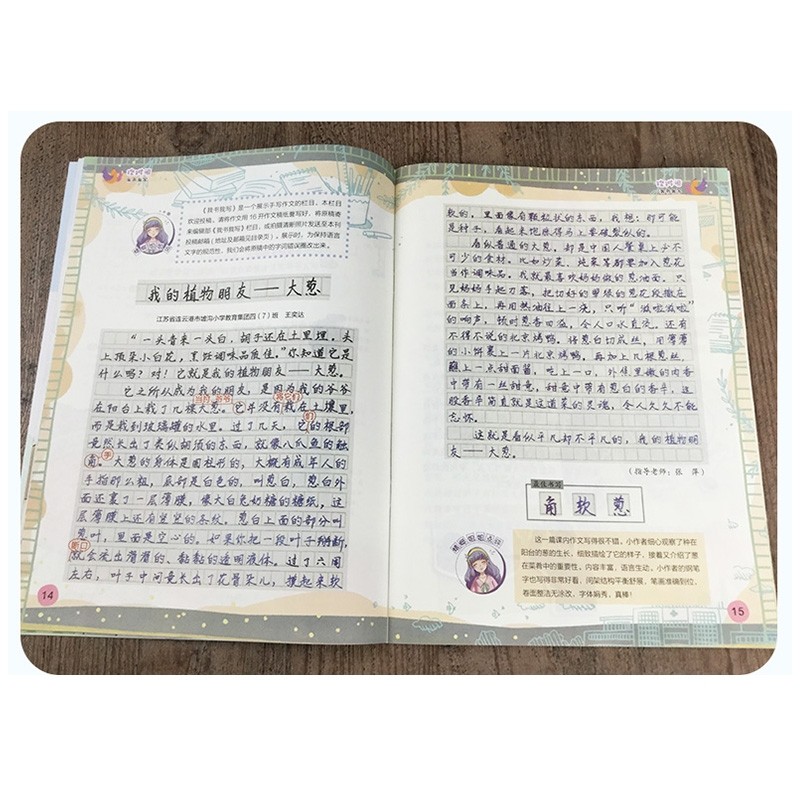 《我书我写》是一个展示手写作文的栏目，本栏目
欢迎投稿，请将作文用16开作文稿纸誊写好，将原稿寄
来编辑部《我书我写》栏目，或拍摄清晰照片发送至本刊
投稿邮箱（地址及邮箱见目录页）。展示时，为保持语言
文字的规范性，我们会将原稿中的字词错误圈改出来。
我的植物朋友——大葱
江苏省连云港市墟沟小学教育集团四（7）班 王奕达
“一头青来一头白，胡子还在土里埋。头
上顶朵小白花，烹饪调味品质佳。”你知道它是
什么吗？对！它就是我的植物朋友——大葱。
它之所以成为我的朋友，是因为我的爷爷
在阳台上栽了几棵大葱。它并没有栽在土壤里，
而是栽到玻璃罐的水里。过了几天，它的根部
竟然长出了类似胡须的东西，就像八爪鱼的触
角。大葱的身体是圆柱形的，大概有成年人的
手指那么粗，底部是白色的，叫葱白，葱白外
面还裹了一层薄膜，像大白兔奶糖的糖纸，这
层薄膜上还有竖竖的条纹。葱白上面的部分叫
葱叶，里面是空心的，如果你把一段叶子掰断，
断口
就会流出滑滑的、黏黏的透明液体。过了六周
左右，叶子中间竟长出了花骨朵儿，摸起来软
14
软的，里面像有颗粒状的东西，我想：那可能
是种子，看起来饱胀得马上要破裂似的。
看似普通的大葱，却是中国人餐桌上少不
可少的食材。比如炒菜、炖菜等都要加入葱花
当作调味品。我就最喜欢妈妈做的葱油面。只
见妈妈手起刀落，把切好的翠绿的葱花段撒在
面条上，再用热油往上一浇，只听“滋啦滋啦”
的响声，顿时葱香四溢，令人口水直流。还有
不得不说的北京烤鸭，将葱白切成丝，用薄薄
的小饼裹上一片北京烤鸭，再加上几根葱丝，
蘸上一点甜面酱，吃上一口，外焦里嫩的肉香
中带有一丝甜意，甜意中带有葱白的香辛，这
股香辛简直就是这道菜的灵魂，令人久久不能
忘怀。
这就是看似平凡却不平凡的，我的植物朋
友——大葱。
（指导老师：张 萍）
最佳书写
角 软 葱
这一篇课内作文写得很不错，小作者细心观察了种在
阳台的葱的生长，细致描绘了它的样子，接着又介绍了葱
在菜肴中的重要性。内容丰富，语言生动。小作者的钢笔
字也写得非常好看，间架结构平衡舒展，笔画准确到位，
卷面整洁无涂改，字体娟秀，真棒！
15